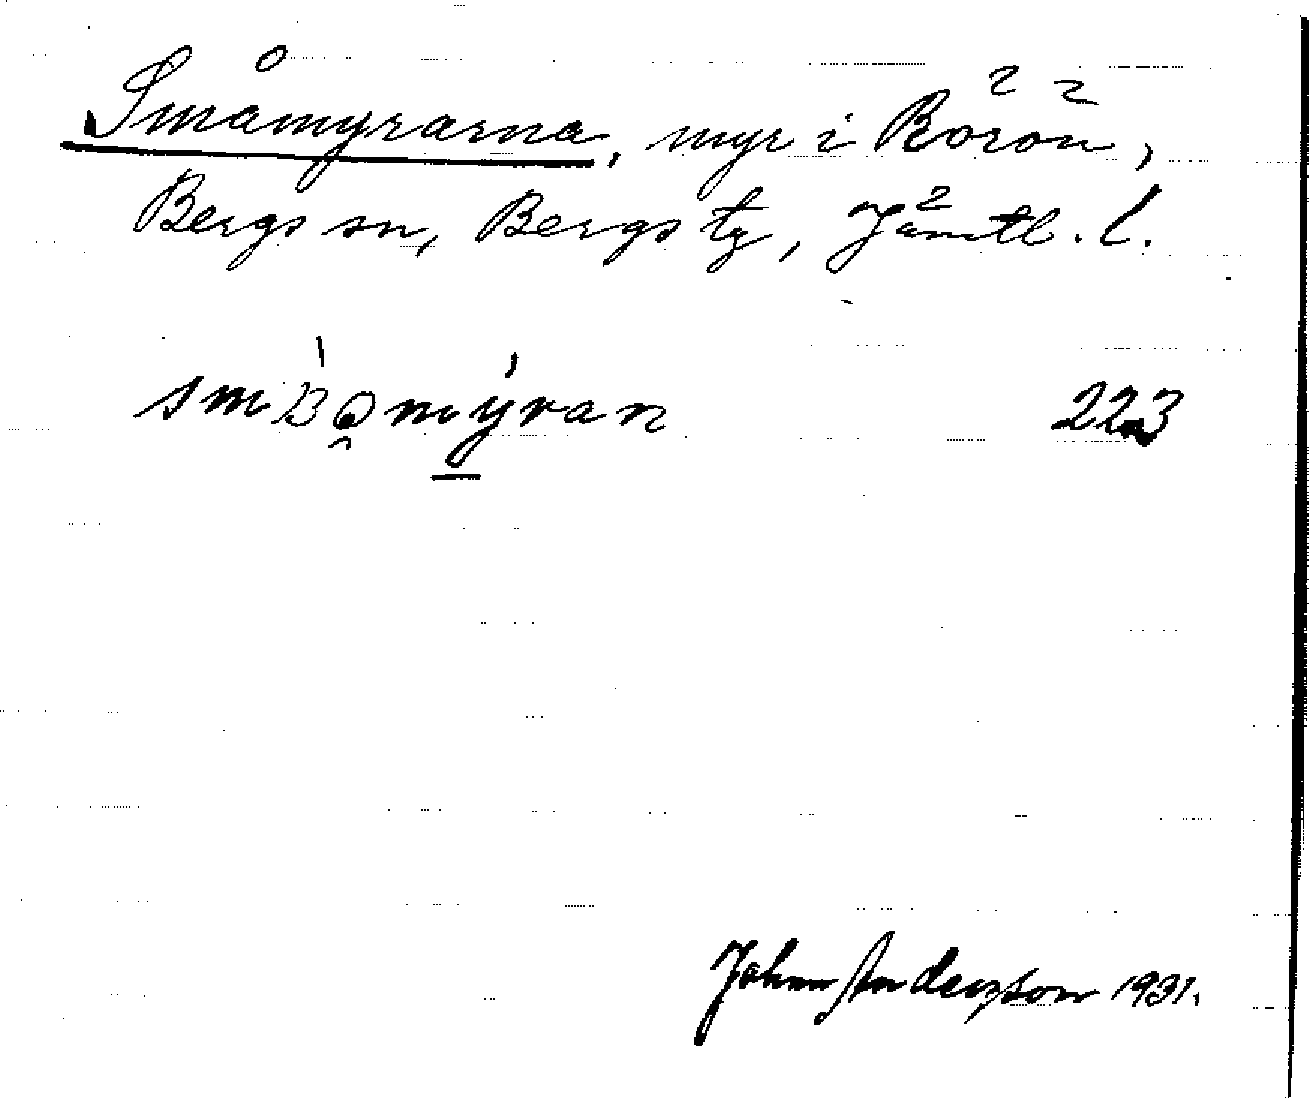 Småmyrarna, myr i Börön,
Bergs sn, Bergs tg, Jämtl. l.
223
John Andersson 1931.